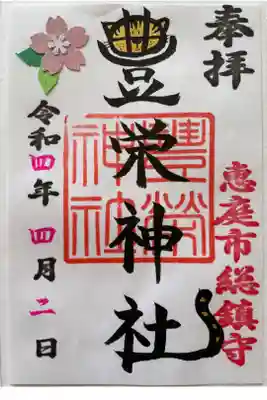 奉拝
恵庭市総鎮守
豊栄神社
豊榮神社
令和四年 四月二日